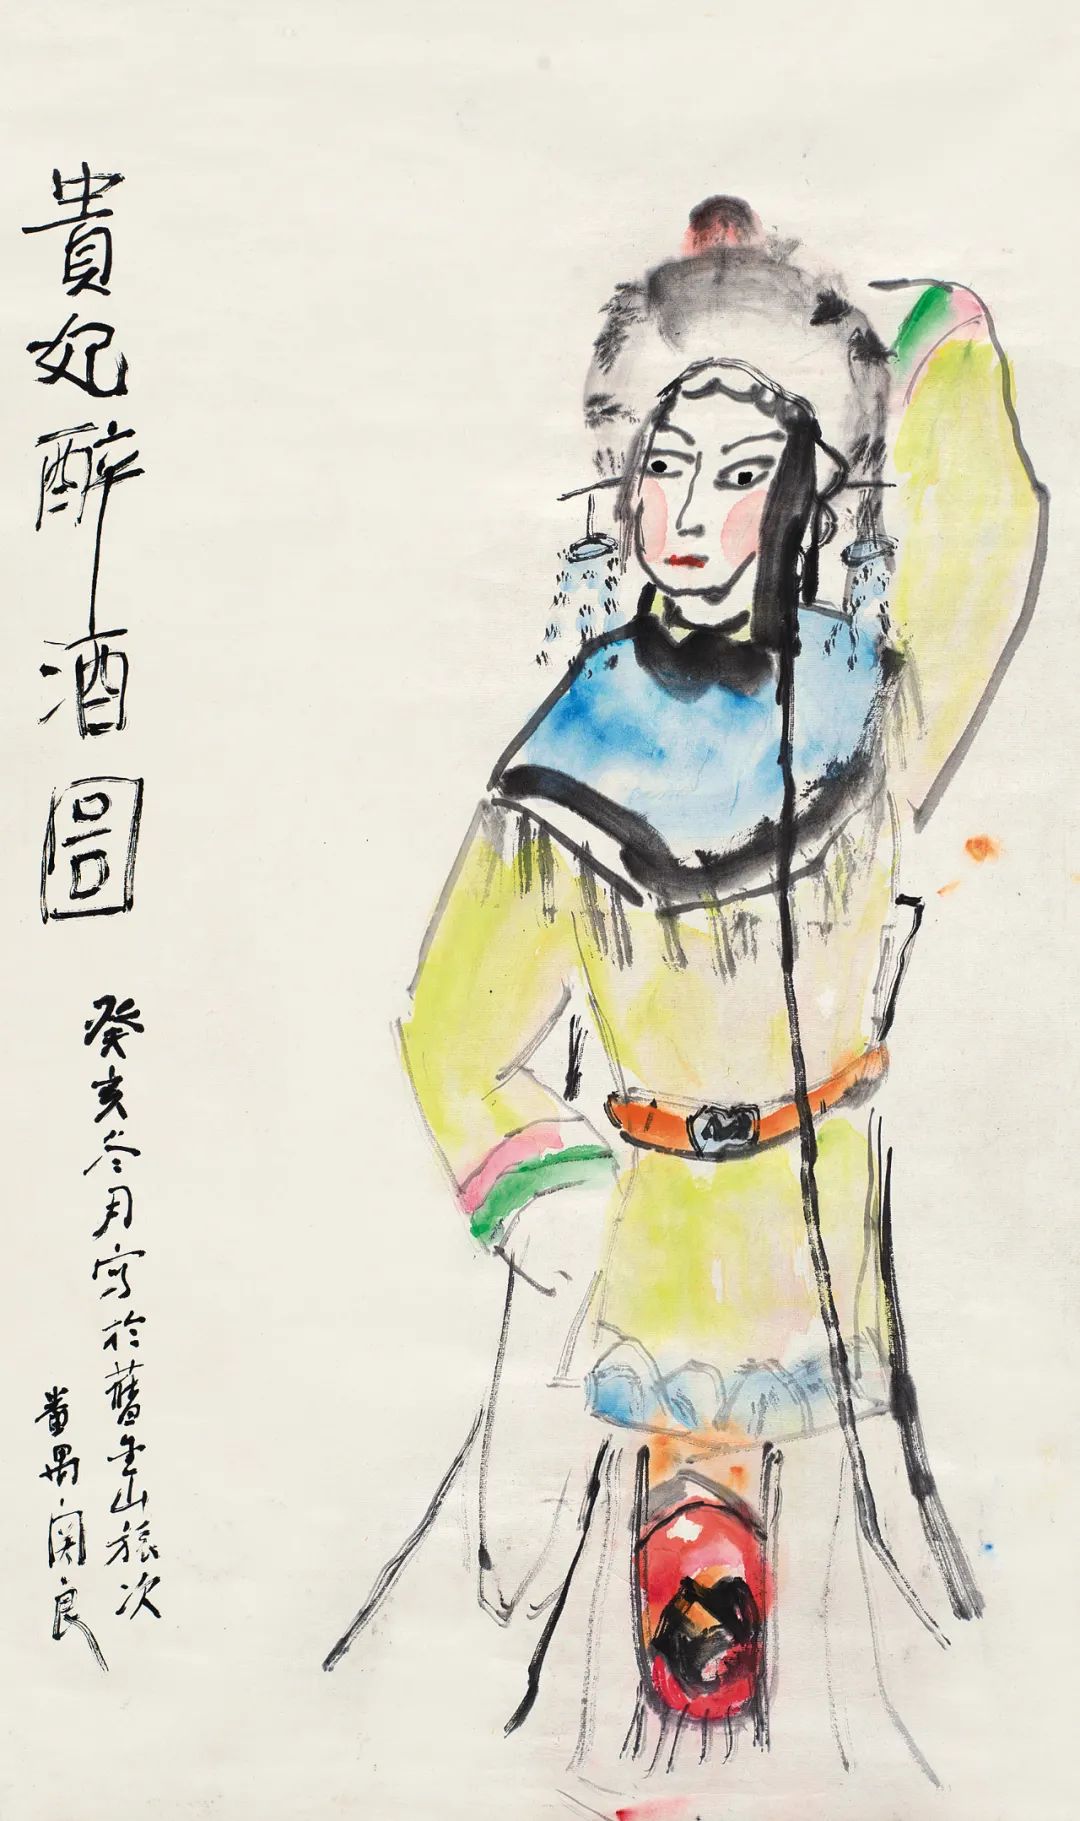 貴妃醉酒圖
癸亥冬月寫於舊金山旅次
番禺関良